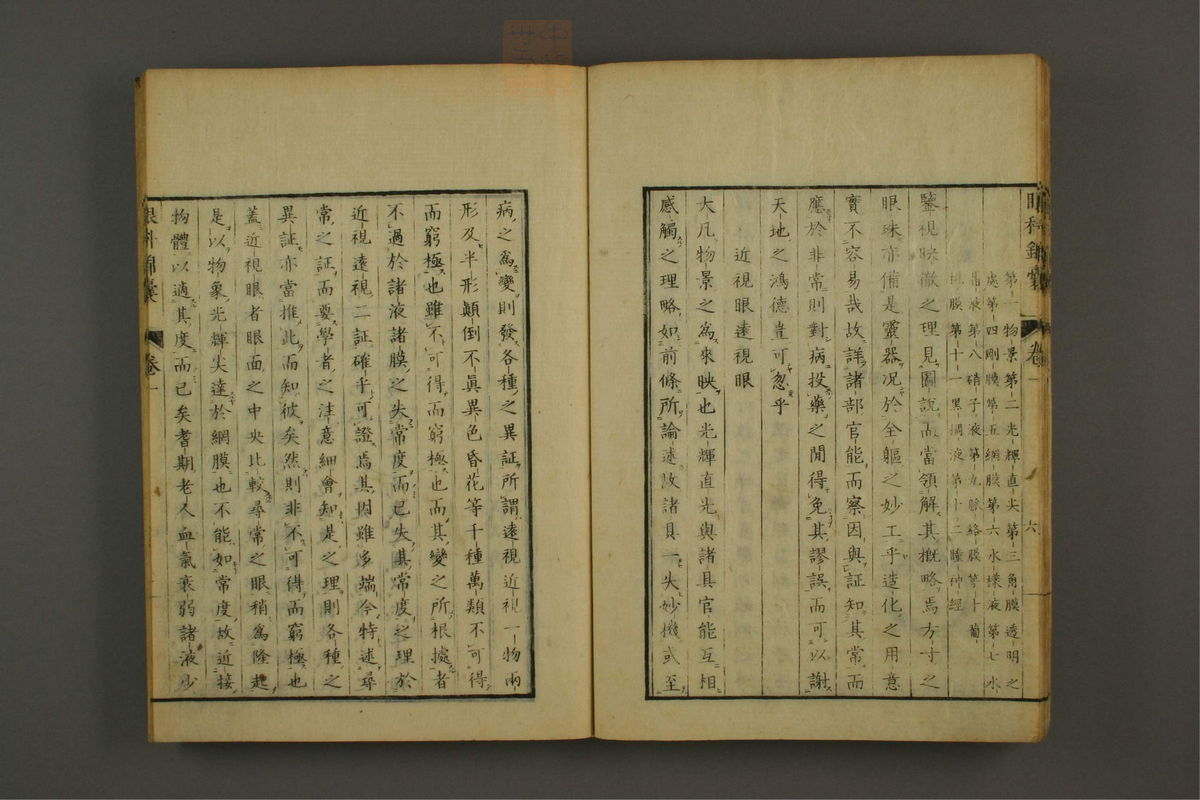 眼科錦囊 卷一 六
第一物景第二光輝直尖第三角膜透明之
處第四剛膜第五網膜第六水樣液第七水
晶液第八硝子液第九脈絡膜第十葡
萄膜第十一黑稠液第十二瞳神經
鑒視映徹之理見圖說而當領解其概略焉方寸之
眼珠亦備是靈器况於全軀之妙工乎造化之用意
實不容易哉故詳諸部官能而察因與証知其常而
應於非常則對病投藥之間得免其謬誤而可以謝
天地之鴻德豈可忽乎
近視眼遠視眼
大凡物景之爲來映也光輝直光與諸具官能互相
感觸之理略如前條所論述故諸具一失妙機或至
病之爲變則發各種之異証所謂遠視近視一物兩
形及半形顛倒不眞異色昏花等千種萬類不可得
而窮極也雖不可得而窮極也而其變之所根據者
不過於諸液諸膜之失常度而已失其常度之理於
近視遠視二証確乎可證焉其因雖多端今特述尋
常之証而要學者之注意細會知是之理則各種之
異証亦當推此而知彼矣然則非不可得而窮極也
蓋近視眼者眼面之中央比較尋常之眼稍爲隆起
是以物象光輝尖達於網膜也不能如常度故近接
物體以適其度而已矣耆期老人血氣衰弱諸液少
眼科錦囊 卷一